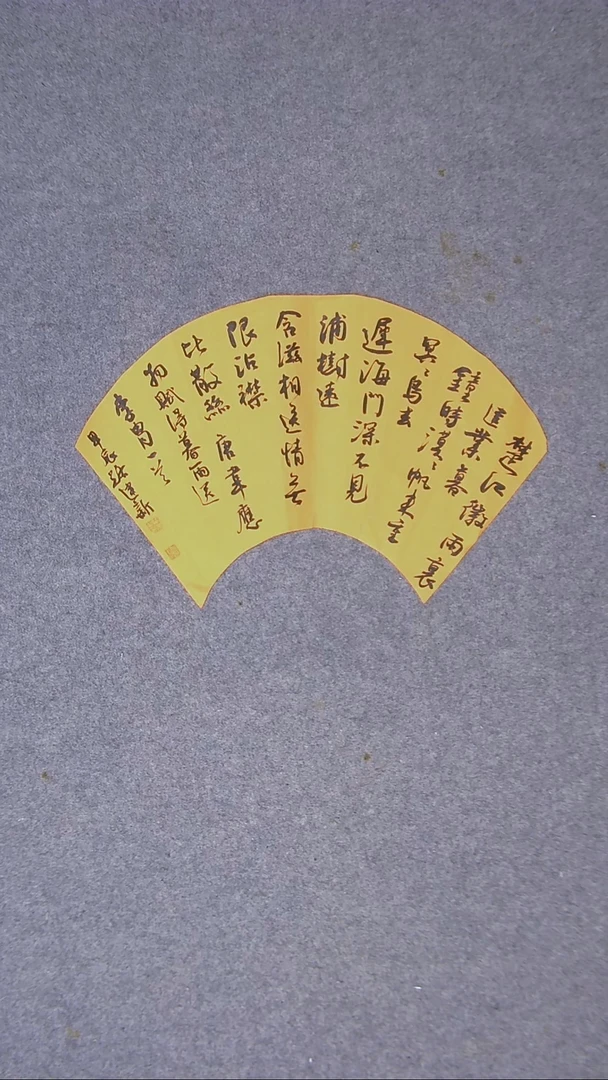 楚江徽雨裏
建業暮
鐘時漠々帆來重
冥々鳥去
遲海門深不見
浦樹遠
含滋相送情無
限沾襟
比散絲 唐韋應
物賦得暮雨送
李胄一首
甲辰 建新